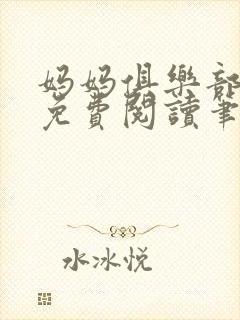 妈妈俱樂部
免費閱讀筆
水冰悦